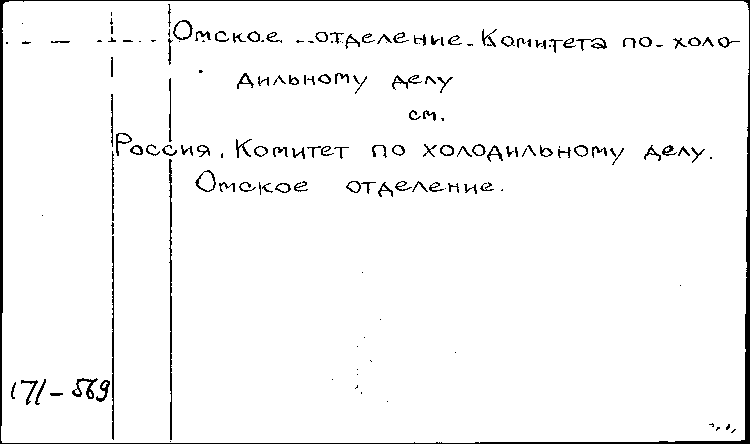 Омское отделение Комитета по холо-
дильному делу
см.
Россия. Комитет по холодильному делу.
Омское отделение.
171-569